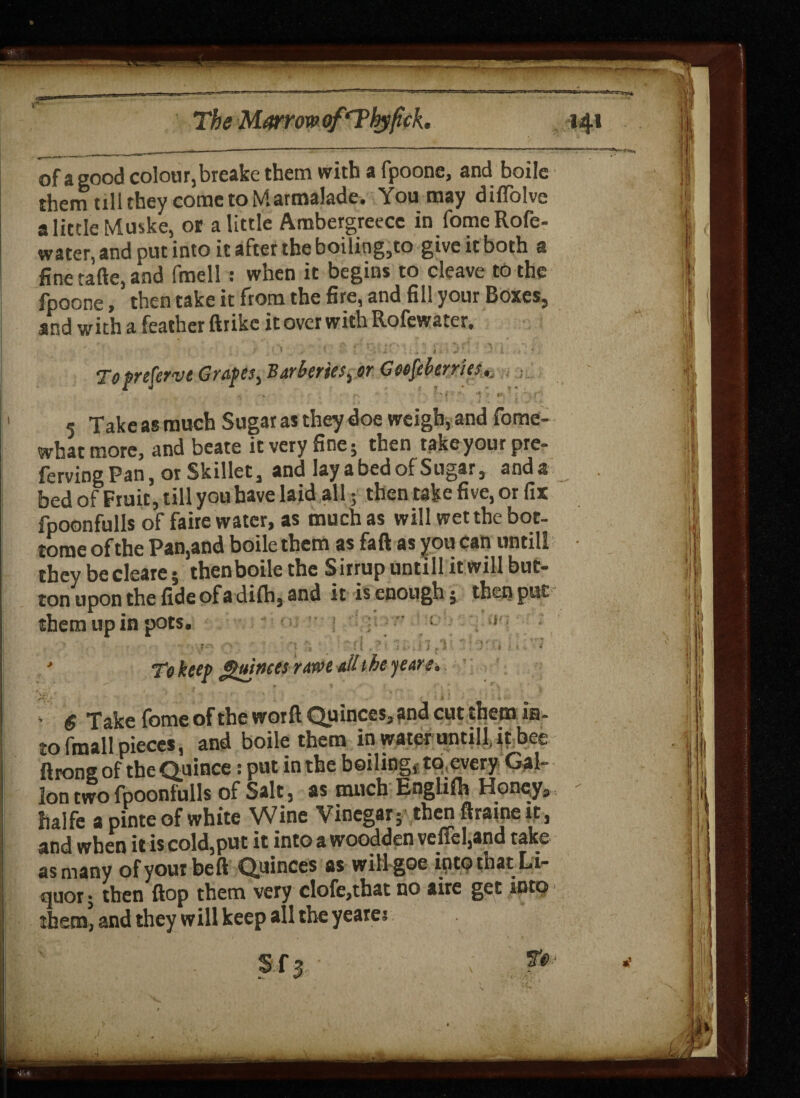 The Marrow of Phyſick. 141
of a good colour, breake them with a ſpoone, and boile
them till they come to Marmalade. You may diſſolve
a little Muske, or a little Ambergreece in ſome Roſe-
water, and put into it after the boiling, to give it both a
fine taſte, and ſmell : when it begins to cleave to the
ſpoone, then take it from the fire, and fill your Boxes,
and with a feather ſtrike it over with Roſewater.
To preſerve Grapes, Barberies, or Gooſeberries.
5 Take as much Sugar as they doe weigh, and ſome-
what more, and beate it very fine; then take your pre-
ſerving Pan, or Skillet, and lay a bed of Sugar, and a
bed of Fruit, till you have laid all; then take five, or ſix
ſpoonfulls of faire water, as much as will wet the bot-
tome of the Pan, and boile them as faſt as you can untill
they be cleare; then boile the Sirrup untill it will but-
ton upon the ſide of a diſh, and it is enough; then put
them up in pots.
To keep Quinces rawe all the yeare.
6 Take ſome of the worſt Quinces, and cut them in-
to ſmall pieces, and boile them in water untill it bee
ſtrong of the Quince : put in the boiling, to every Gal-
lon two ſpoonfulls of Salt, as much Engliſh Honey,
halfe a pinte of white Wine Vinegar; then ſtraine it,
and when it is cold, put it into a woodden veſſel; and take
as many of your beſt Quinces as will goe into that Li-
quor; then ſtop them very cloſe, that no aire get into
them, and they will keep all the yeare:
Sſ3 To